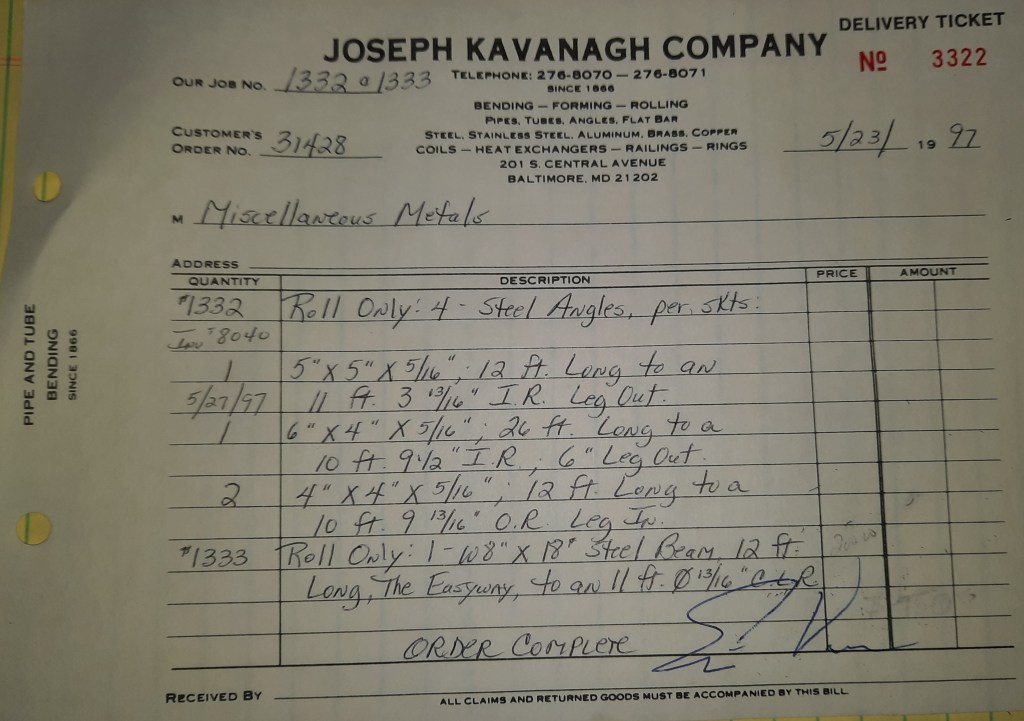 DELIVERY TICKET
JOSEPH KAVANAGH COMPANY
Nº 3322
OUR JOB NO. 1332 & 1333
TELEPHONE: 276-8070 — 276-8071
SINCE 1866
BENDING — FORMING — ROLLING
PIPES, TUBES, ANGLES, FLAT BAR
CUSTOMER'S ORDER NO. 31428
STEEL, STAINLESS STEEL, ALUMINUM, BRASS, COPPER
COILS — HEAT EXCHANGERS — RAILINGS — RINGS
5/23/ 19 97
201 S. CENTRAL AVENUE
BALTIMORE, MD 21202
M Miscellaneous Metals
ADDRESS
QUANTITY DESCRIPTION PRICE AMOUNT
#1332 Roll Only: 4 - Steel Angles, per. skts:
Inv #8040
1 5" X 5" X 5/16"; 12 ft. Long to an
5/27/97 11 ft. 3 13/16" I.R. Leg Out.
1 6" X 4" X 5/16"; 26 ft. Long to a
10 ft. 9 1/2" I.R.; 6" Leg Out.
2 4" X 4" X 5/16"; 12 ft. Long to a
10 ft. 9 13/16" O.R. Leg In.
#1333 Roll Only: 1 - W8" X 18# Steel Beam, 12 ft.
Long, The Easyway, to an 11 ft. 0 13/16" CLR
ORDER COMPLETE
RECEIVED BY
ALL CLAIMS AND RETURNED GOODS MUST BE ACCOMPANIED BY THIS BILL.
PIPE AND TUBE
BENDING
SINCE 1866